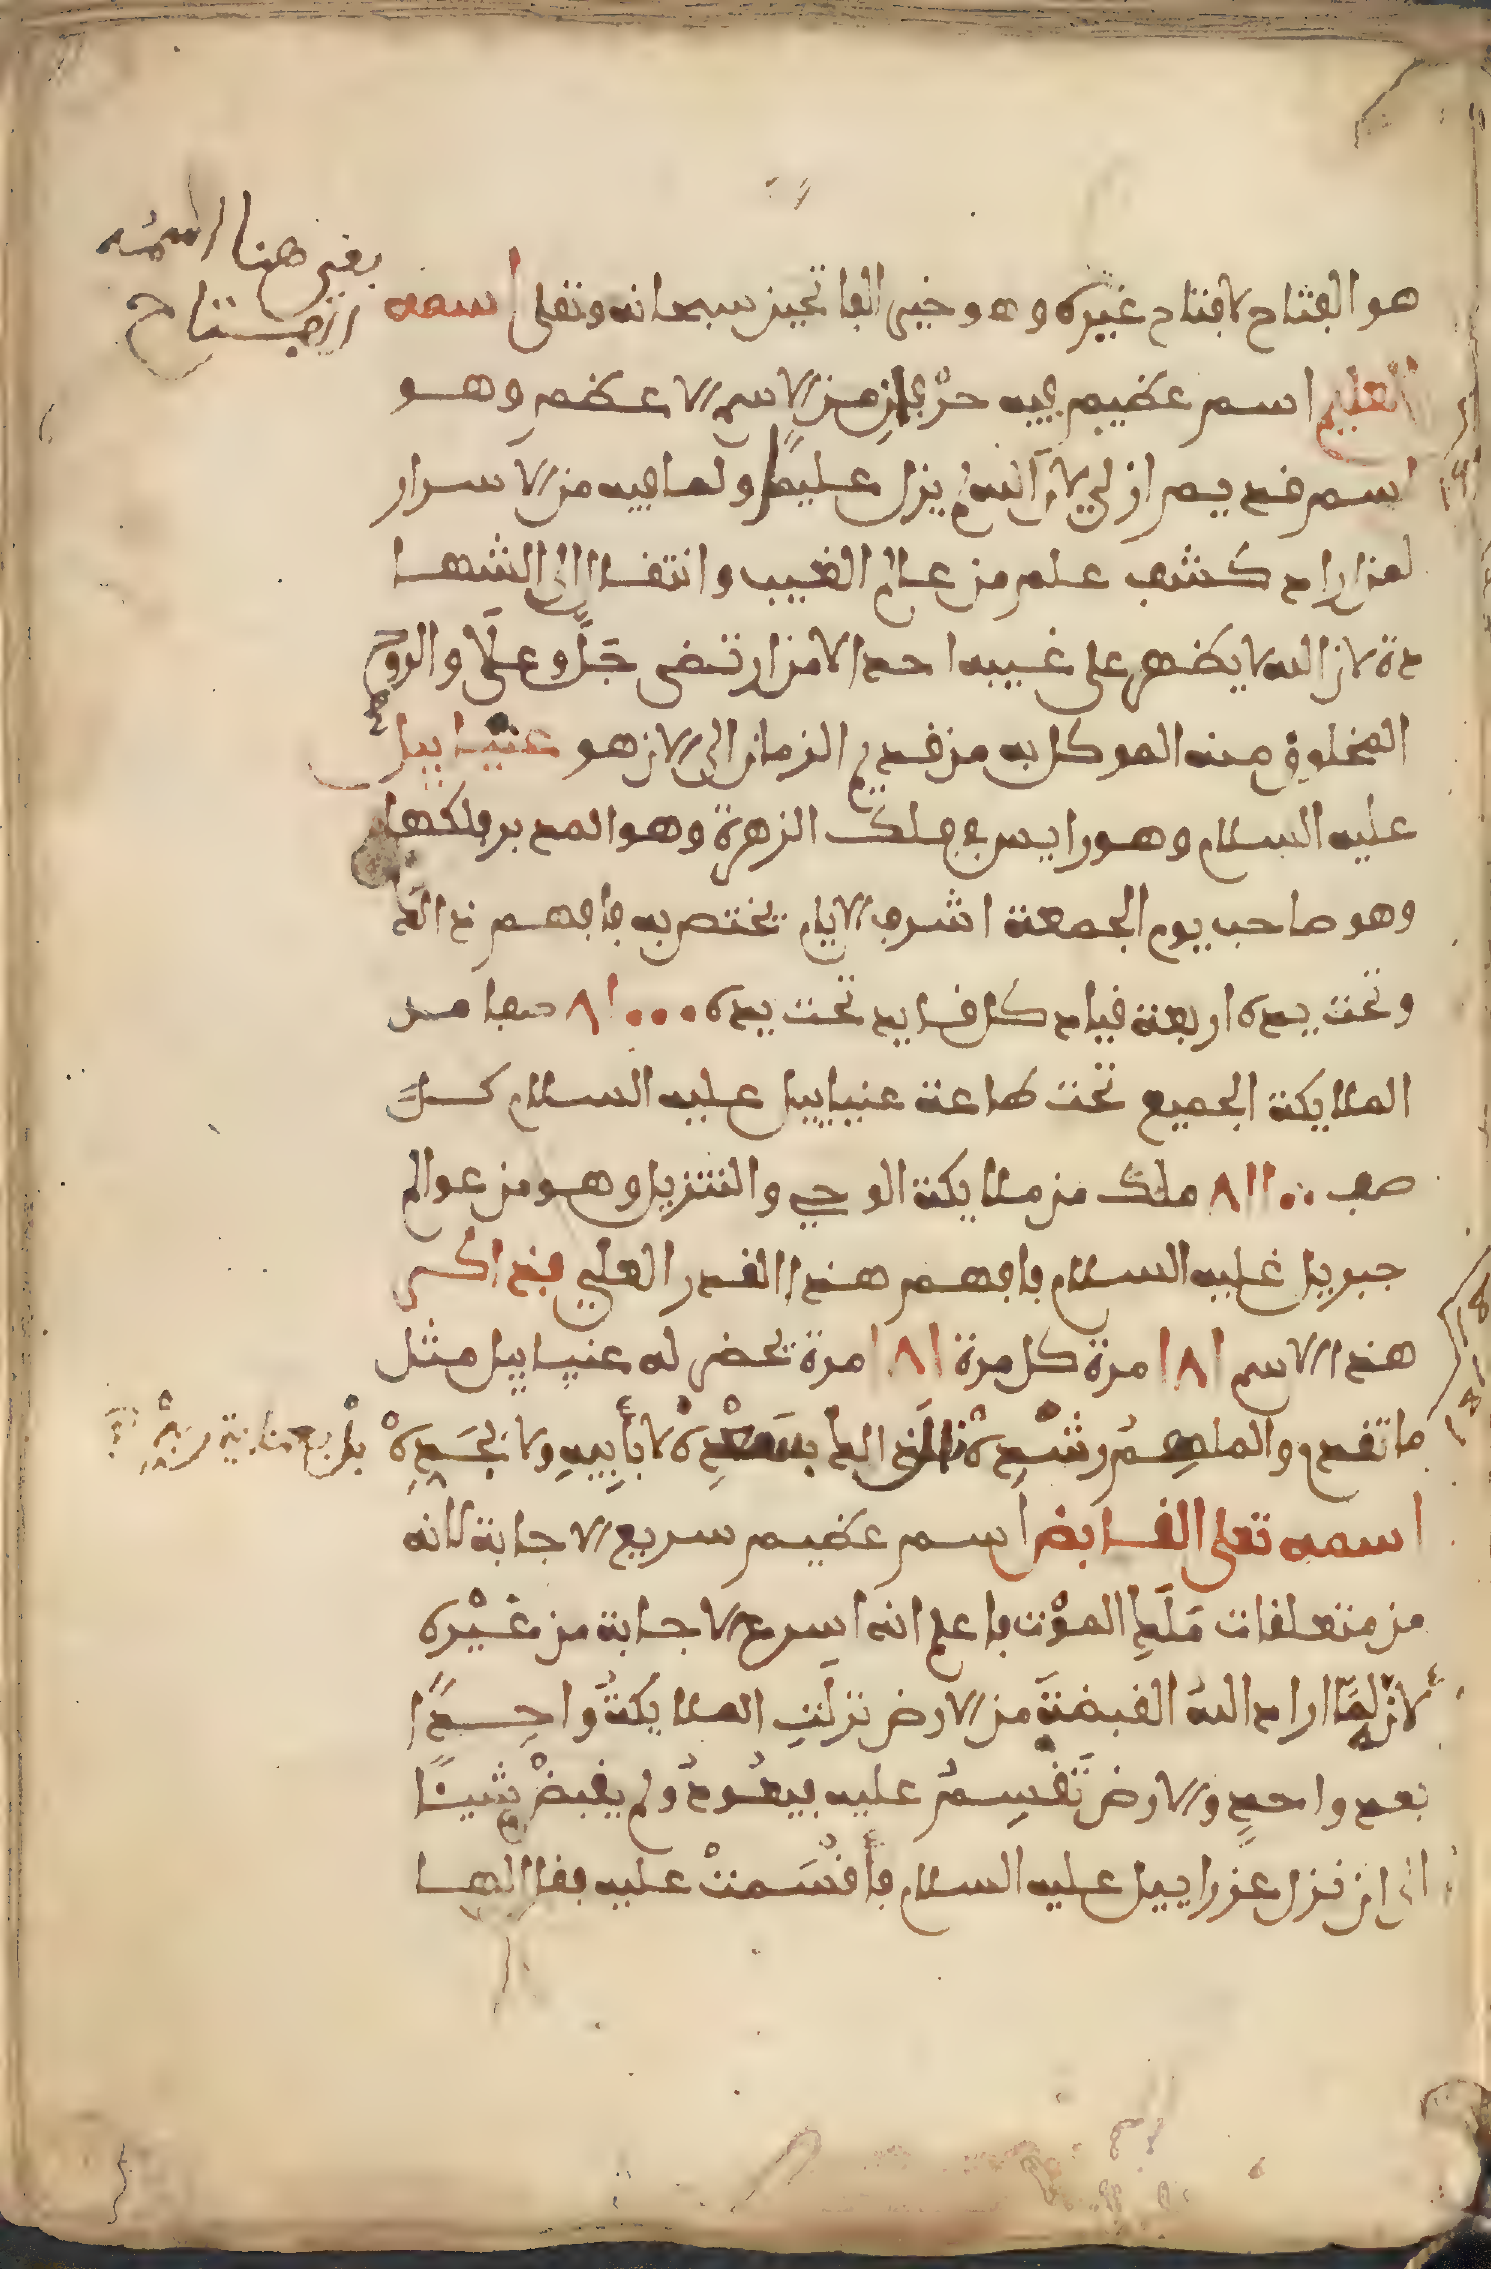 هو الفتاح لا فتاح غيره وهو خير الفاتحين سبحانه وتعلى اسمه
العليم اسم عظيم فيه حرفان من الاسم الاعظم وهو
اسم قديم ازلي لان الله لم يزل عليما ولما فيه من الاسرار
لمن اراد كشف علم من عالم الغيب وانتقاله الى الشها
دة لان الله لا يظهر على غيبه احدا الا من ارتضى جَلَّ وعَلَا والروح
المخلوق منه الموكل به من قديم الزمان الى الان هو عنياييل
عليه السلام وهو رايس في فلك الزهرة وهو المدبر فلكها
وهو صاحب يوم الجمعة اشرف الايام يختص به فافهم ذالك
وتحت يده اربعة قياد كل قايد تحت يده ٨١٠٠٠ صفا من
الملايكة الجميع تحت طاعة عنياييل عليه السلام كل
صف ٨١١٠٠ ملك من ملايكة الوحي والتنزيل وهو من عوالم
جبريل عليه السلام فافهم هذا القدر العلي فذاكر
هذا الاسم ١٨١ مرة كل مرة ١٨١ مرة يحضر له عنياييل مثل
ما تقدم والملهم رشده نال ذالك بسعده لا بأبيه ولا بجده
اسمه تعلى القابض اسم عظيم سريع الاجابة لانه
من متعلقات مَلَكِ الموت فاعلم انه اسرع الاجابة من غيره
لأن لمّا اراد الله القبضة من الارض نزلتِ الملايكةُ واحدًا
بعد واحدٍ والارض تَقسِمُ عليه فيعودُ ولم يقبضْ شيئا
الى ان نزل عزراييل عليه السلام فأقسمتْ عليه فقال لها
بقي هنا اسمه
الفتاح